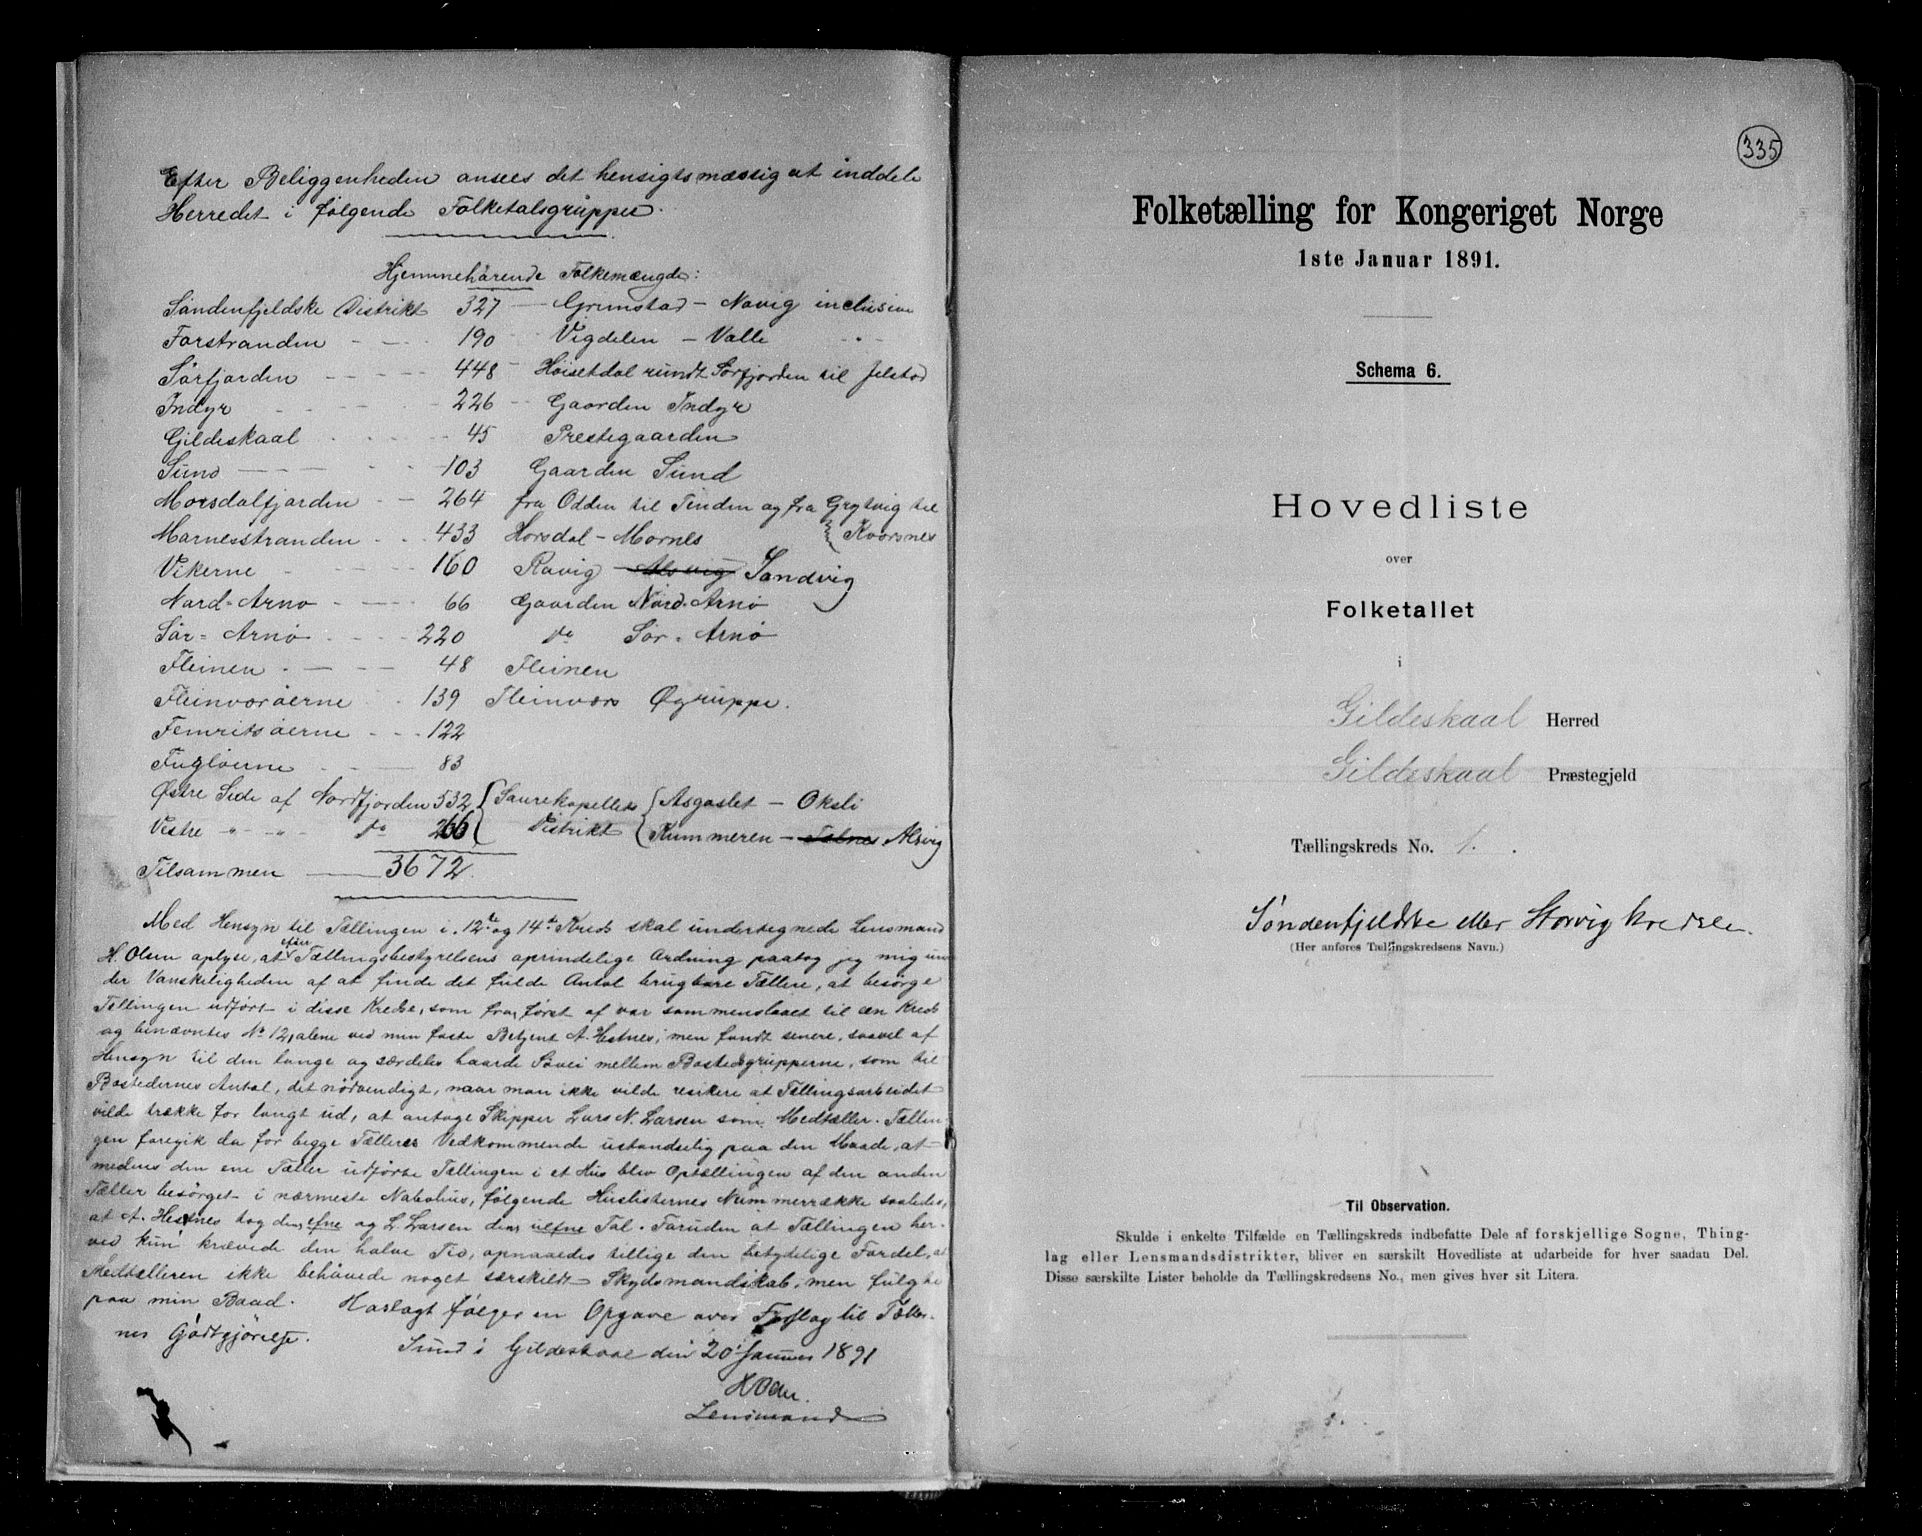 Efter Beliggenheden ansees det hensigtsmæssig at inddele
Herredet i følgende Folketalsgrupper.
Hjemmehørende Folkemængde:
Søndenfjeldske Distrikt 327 — Grimstad – Novig inclusive
Forstranden - - - 190 - Vigdelen – Valle - " -
Sørfjorden - - - - - 448 - Høisetdal rundt Sørfjorden til Jelstad
Indyr - - - - 226 - Gaarden Indyr
Gildeskaal - - - - 45 Prestegaarden
Sund - - - - - 103 Gaarden Sund
Morsdalfjorden - - 264 fra Odden til Tinden og fra Grytvig til
Marnesstranden - - - 433 Horsdal – Mornes { Kvorsnes
Vikerne - - - - 160 Ravig – Alsvig Sandvig
Nord-Arnø - - - - 66 Gaarden Nord-Arnø
Sør-Arnø - - - - 220 do Sør-Arnø
Fleinen - - - - 48 Fleinen
Fleinværøerne - - 139 Fleinværs Øgruppe.
Femrisøerne - - - 122
Fugløerne - - - 83
Østre Side af Nordfjorden 532 { Saurekapellets { Asgaslet – Oksli
Vestre - " - " - do 266 { Distrikt { Kummeren – Tolnes Alsvig
Tilsammen — 3672
Med Hensyn til Tællingen i 12te og 14de Kreds skal undertegnede Lensmand
H. Olsen oplyse, at efter Tællingsbestyrelsens oprindelige Ordning paatog jeg mig un-
der Vanskeligheden af at finde det fulde Antal brugbare Tællere, at besørge
Tællingen udført i disse Kredse, som fra først af var sammenslaaet til en Kreds
og benævntes No 12, alene ved min faste Betjent A. Hestnes, men fandt senere, saavel af
Hensyn til den lange og særdeles haarde Søvei mellem Bostedsgrupperne, som til
Bostedernes Antal, det nødvendigt, naar man ikke vilde risikere at Tællingsarbeidet
vilde trække for langt ud, at antage Skipper Lars N. Larsen som Medtæller. Tællin-
gen foregik da for begge Tælleres Vedkommende ustandselig paa den Maade, at
medens den ene Tæller udførte Tællingen i et Hus blev Optællingen af den anden
Tæller besørget i nærmeste Nabohus, følgende Huslisternes Nummerrække saaledes,
at A. Hestnes tog dens efne og L. Larsen dens uefne Tal. Foruden at Tællingen her-
ved kun krævede den halve Tid, opnaaedes tillige den betydelige Fordel, at
Medtælleren ikke behøvede noget særskildt Skydsmandskab, men fulgte
paa min Baad. Hoslagt følger en Opgave over Forslag til Tæller-
nes Godtgjørelse.
Sund i Gildeskaal den 20 Januar 1891
H Olsen
Lensmand
335
Folketælling for Kongeriget Norge
1ste Januar 1891.
Schema 6.
Hovedliste
over
Folketallet
i
Gildeskaal Herred
Gildeskaal Præstegjeld
Tællingskreds No. 1.
Søndenfjeldske eller Storvig kredse.
(Her anføres Tællingskredsens Navn.)
Til Observation.
Skulde i enkelte Tilfælde en Tællingskreds indbefatte Dele af forskjellige Sogne, Thing-
lag eller Lensmandsdistrikter, bliver en særskilt Hovedliste at udarbeide for hver saadan Del.
Disse særskilte Lister beholde da Tællingskredsens No., men gives hver sit Litera.